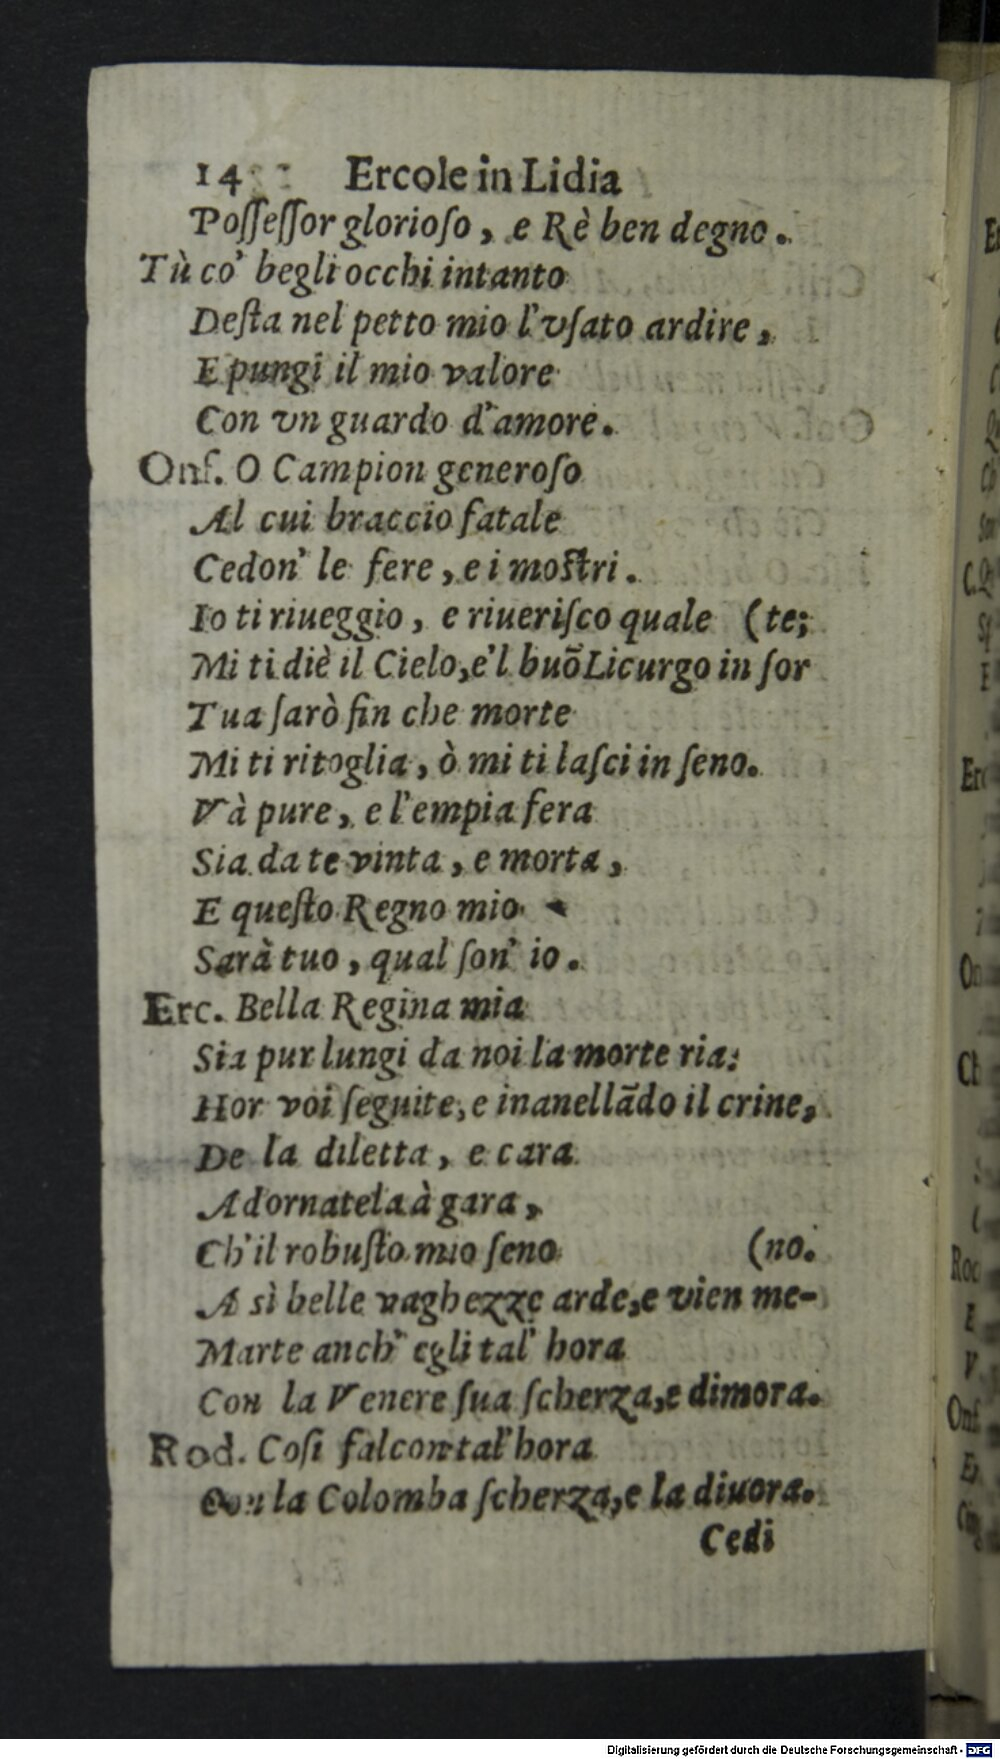 14 Ercole in Lidia
Poſſeſſor glorioſo, e Rè ben degno.
Tù co' begli occhi intanto
Deſta nel petto mio l'vſato ardire,
E pungi il mio valore
Con vn guardo d'amore.
Onf. O Campion generoſo
Al cui braccio fatale
Cedon' le fere, e i moſtri.
Io ti riueggio, e riueriſco quale (te;
Mi ti diè il Cielo, e'l buõ Licurgo in ſor
Tua ſarò fin che morte
Mi ti ritoglia, ò mi ti laſci in ſeno.
Và pure, e l'empia fera
Sia da te vinta, e morta,
E queſto Regno mio
Sarà tuo, qual ſon' io.
Erc. Bella Regina mia
Sia pur lungi da noi la morte ria:
Hor voi ſeguite, e inanellãdo il crine,
De la diletta, e cara
Adornatela à gara,
Ch'il robuſto mio ſeno (no.
A sì belle vaghezze arde, e vien me-
Marte anch' egli tal' hora
Con la Venere ſua ſcherza, e dimora.
Rod. Coſi falcon tal'hora
Con la Colomba ſcherza, e la diuora.
Cedi
Digitalisierung gefördert durch die Deutsche Forschungsgemeinschaft - DFG